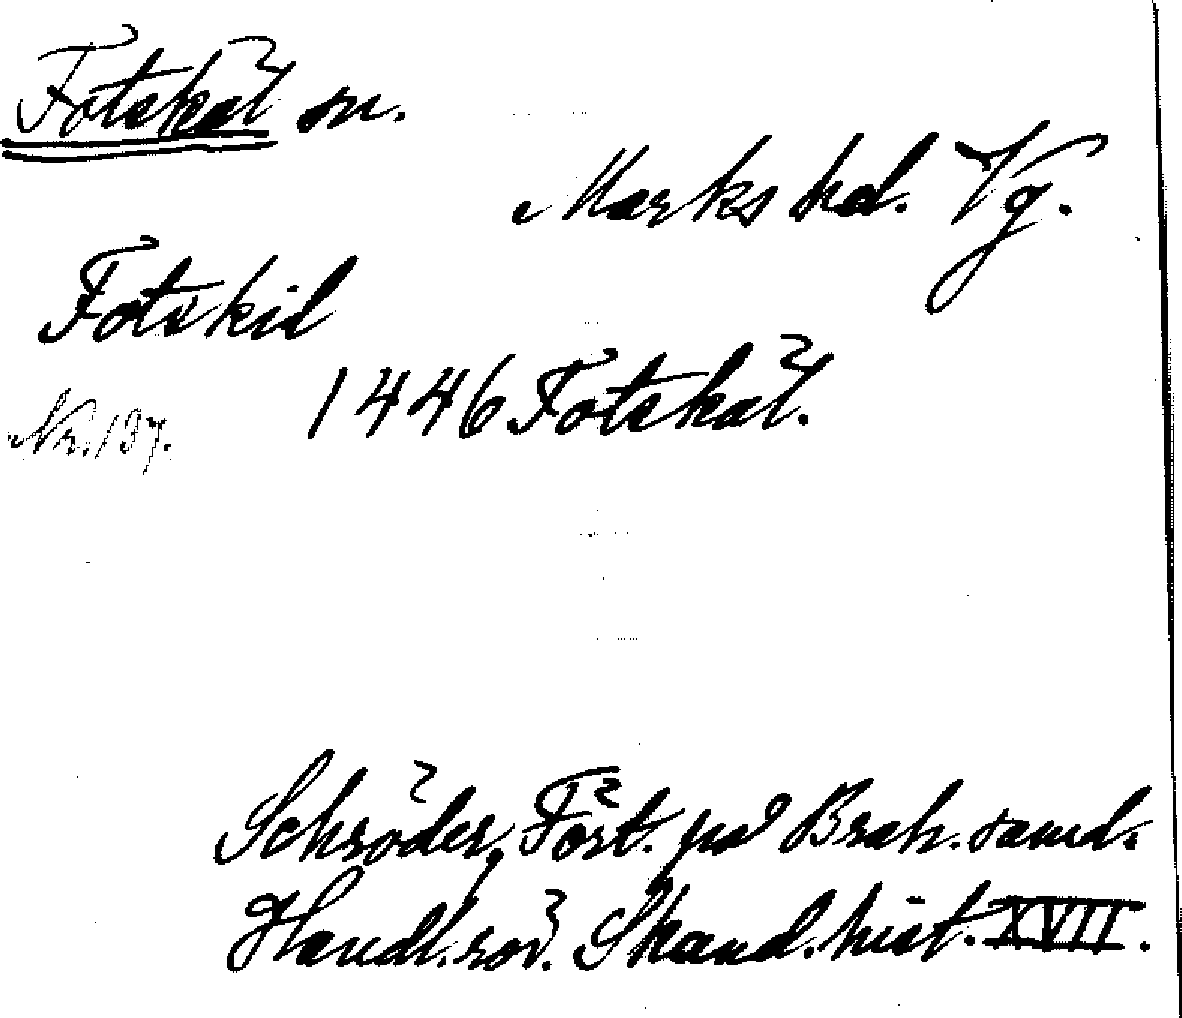 Fotskäl sn.
Marks hd. Vg.
Fotskil
1446 Fotskäl.
Nr. 137.
Schröder, Fört. på Brah. saml.
Handl. rör. Skand. hist. XVII.